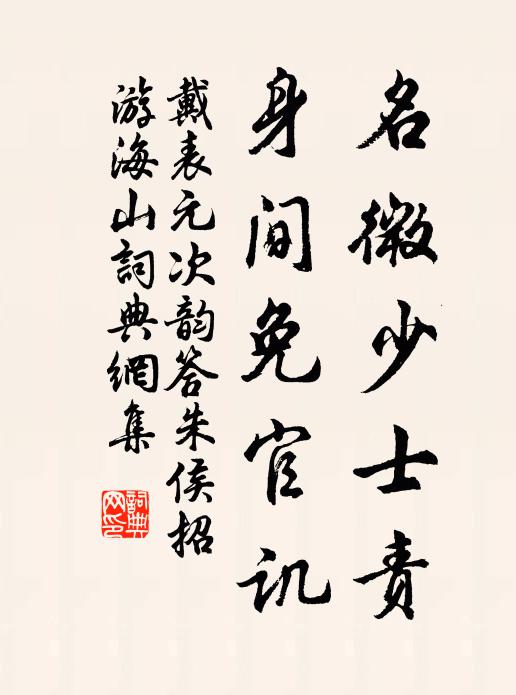 名微少士责
身间免官讥
戴表元次韵答朱侯招
游海山詞典網集
詞典
网印